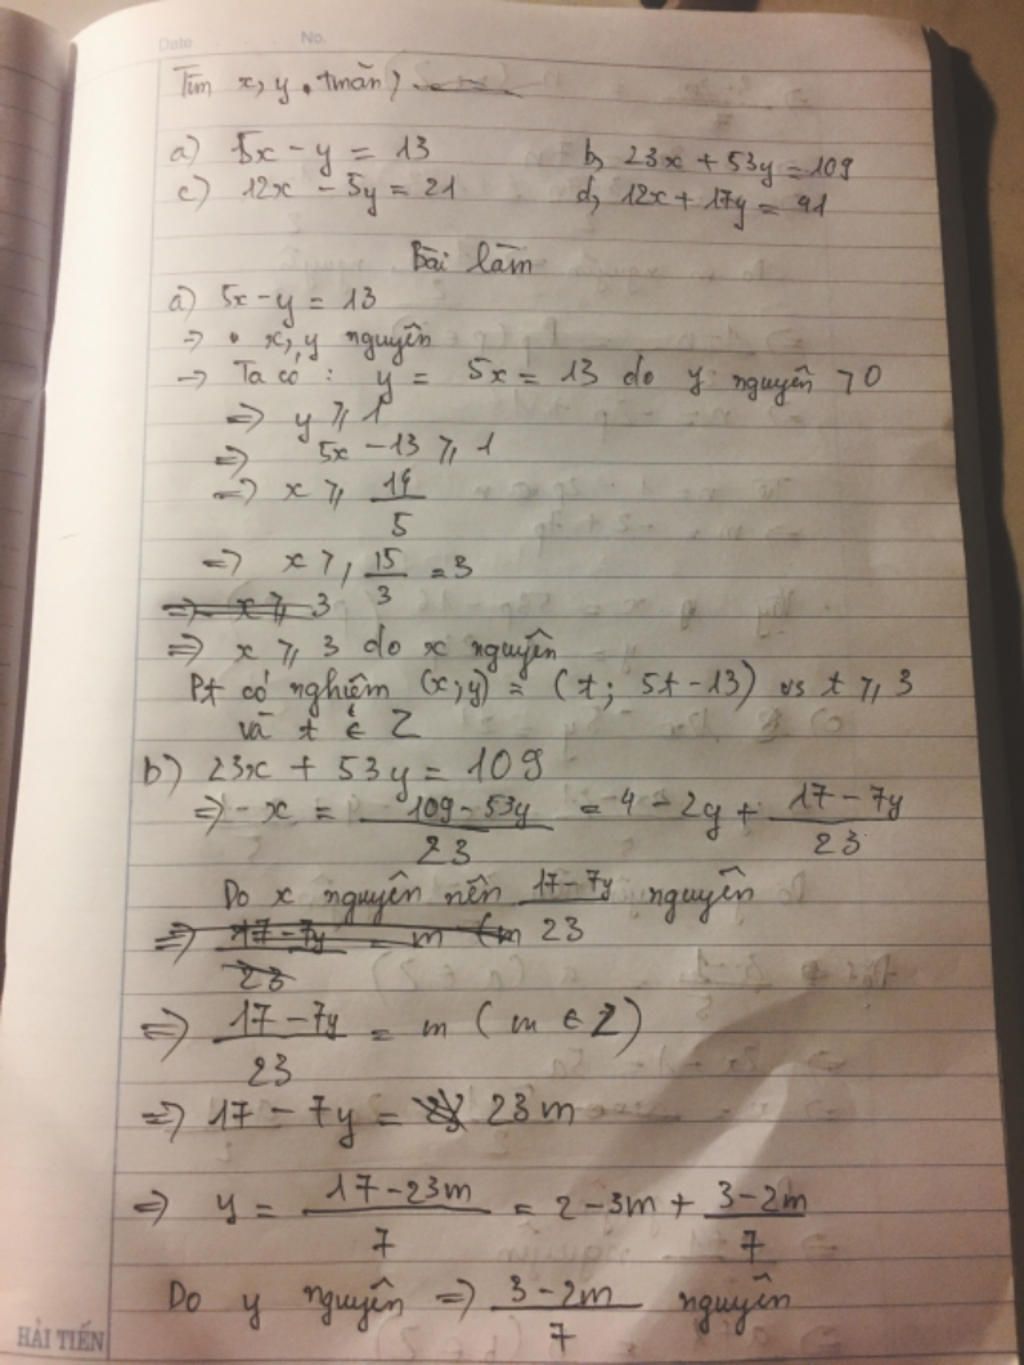 Date No.
Tìm x, y tmãn)
a) 5x - y = 13 b, 23x + 53y = 109
c) 12x - 5y = 21 d, 12x + 17y = 41
Bài làm
a) 5x - y = 13
→ • x, y nguyên
→ Ta có : y = 5x = 13 do y nguyên > 0
⇒ y ⩾ 1
⇒ 5x - 13 ⩾ 1
⇒ x ⩾ 14/5
⇒ x ⩾ 15/3 = 3
⇒ x ⩾ 3
⇒ x ⩾ 3 do x nguyên
Pt có nghiệm (x; y) = (t; 5t - 13) vs t ⩾ 3
và t ∈ Z
b) 23x + 53y = 109
⇒ - x = (109 - 53y)/23 = 4 - 2y + (17 - 7y)/23
Do x nguyên nên (17 - 7y)/23 nguyên
⇒ (17 - 7y)/23 = m (m
⇒ (17 - 7y)/23 = m ( m ∈ Z )
⇒ 17 - 7y = 23m
⇒ y = (17 - 23m)/7 = 2 - 3m + (3 - 2m)/7
Do y nguyên ⇒ (3 - 2m)/7 nguyên
HẢI TIẾN